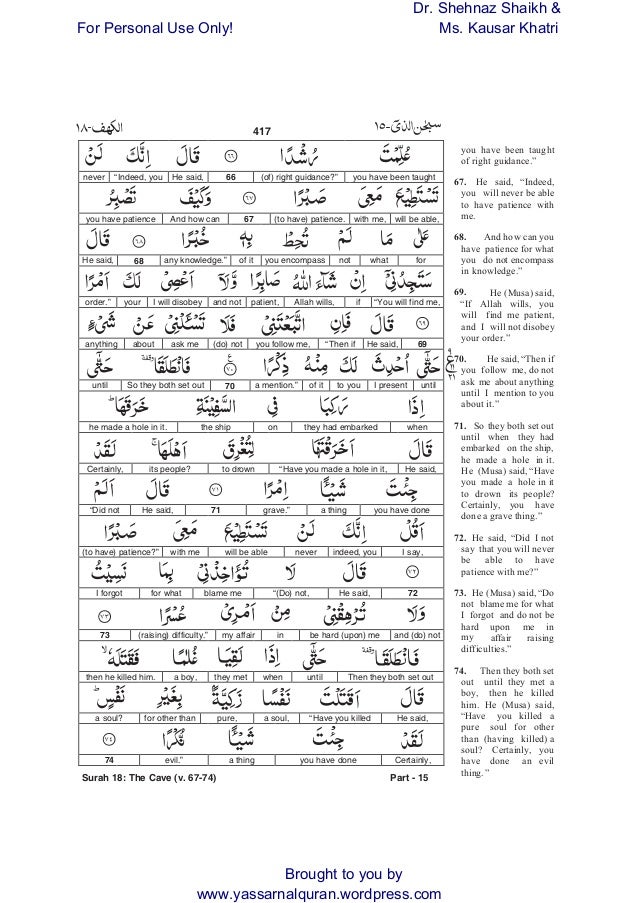 Dr. Shehnaz Shaikh &
For Personal Use Only! Ms. Kausar Khatri
الكهف-١٨ 417 سبحن الذی-١٥
عُلِّمْتَ رُشْدًا ٦٦ قَالَ إِنَّكَ لَنْ
never “Indeed, you He said, 66 (of) right guidance?” you have been taught
تَسْتَطِيْعَ مَعِيَ صَبْرًا ٦٧ وَكَيْفَ تَصْبِرُ
you have patience And how can 67 (to have) patience. with me, will be able,
عَلٰى مَا لَمْ تُحِطْ بِهٖ خُبْرًا ٦٨ قَالَ
He said, 68 any knowledge.” of it you encompass not what for
سَتَجِدُنِيْ اِنْ شَآءَ اللّٰهُ صَابِرًا وَّلَآ اَعْصِيْ لَكَ اَمْرًا
order.” your I will disobey and not patient, Allah wills, if “You will find me,
٦٩ قَالَ فَاِنِ اتَّبَعْتَنِيْ فَلَا تَسْـَٔلْنِيْ عَنْ شَيْءٍ
anything about ask me (do) not you follow me, “Then if He said, 69
حَتّٰٓى اُحْدِثَ لَكَ مِنْهُ ذِكْرًا ٧٠ فَانْطَلَقَا حَتّٰٓى
until So they both set out 70 a mention.” of it to you I present until
اِذَا رَكِبَا فِي السَّفِيْنَةِ خَرَقَهَا
he made a hole in it. the ship on they had embarked when
قَالَ اَخَرَقْتَهَا لِتُغْرِقَ اَهْلَهَا لَقَدْ
Certainly, its people? to drown “Have you made a hole in it, He said,
جِئْتَ شَيْـًٔا اِمْرًا ٧١ قَالَ اَلَمْ
“Did not He said, 71 grave.” a thing you have done
اَقُلْ اِنَّكَ لَنْ تَسْتَطِيْعَ مَعِيَ صَبْرًا
(to have) patience?” with me will be able never indeed, you I say,
٧٢ قَالَ لَا تُؤَاخِذْنِيْ بِمَا نَسِيْتُ
I forgot for what blame me “(Do) not, He said, 72
وَلَا تُرْهِقْنِيْ مِنْ اَمْرِيْ عُسْرًا ٧٣
73 (raising) difficulty.” my affair in be hard (upon) me and (do) not
فَانْطَلَقَا حَتّٰٓى اِذَا لَقِيَا غُلٰمًا فَقَتَلَهٗ
then he killed him. a boy, they met when until Then they both set out
قَالَ اَقَتَلْتَ نَفْسًا زَكِيَّةً بِغَيْرِ نَفْسٍ
a soul? for other than pure, a soul, “Have you killed He said,
لَقَدْ جِئْتَ شَيْـًٔا نُّكْرًا ٧٤
74 evil.” a thing you have done Certainly,
Surah 18: The Cave (v. 67-74) Part - 15
you have been taught
of right guidance.”
67. He said, “Indeed,
you will never be able
to have patience with
me.
68. And how can you
have patience for what
you do not encompass
in knowledge.”
69. He (Musa) said,
“If Allah wills, you
will find me patient,
and I will not disobey
your order.”
70. He said, “Then if
you follow me, do not
ask me about anything
until I mention to you
about it.”
71. So they both set out
until when they had
embarked on the ship,
he made a hole in it.
He (Musa) said, “Have
you made a hole in it
to drown its people?
Certainly, you have
done a grave thing.”
72. He said, “Did I not
say that you will never
be able to have
patience with me?”
73. He (Musa) said, “Do
not blame me for what
I forgot and do not be
hard upon me in
my affair raising
difficulties.”
74. Then they both set
out until they met a
boy, then he killed
him. He (Musa) said,
“Have you killed a
pure soul for other
than (having killed) a
soul? Certainly, you
have done an evil
thing.”
Brought to you by
www.yassarnalquran.wordpress.com